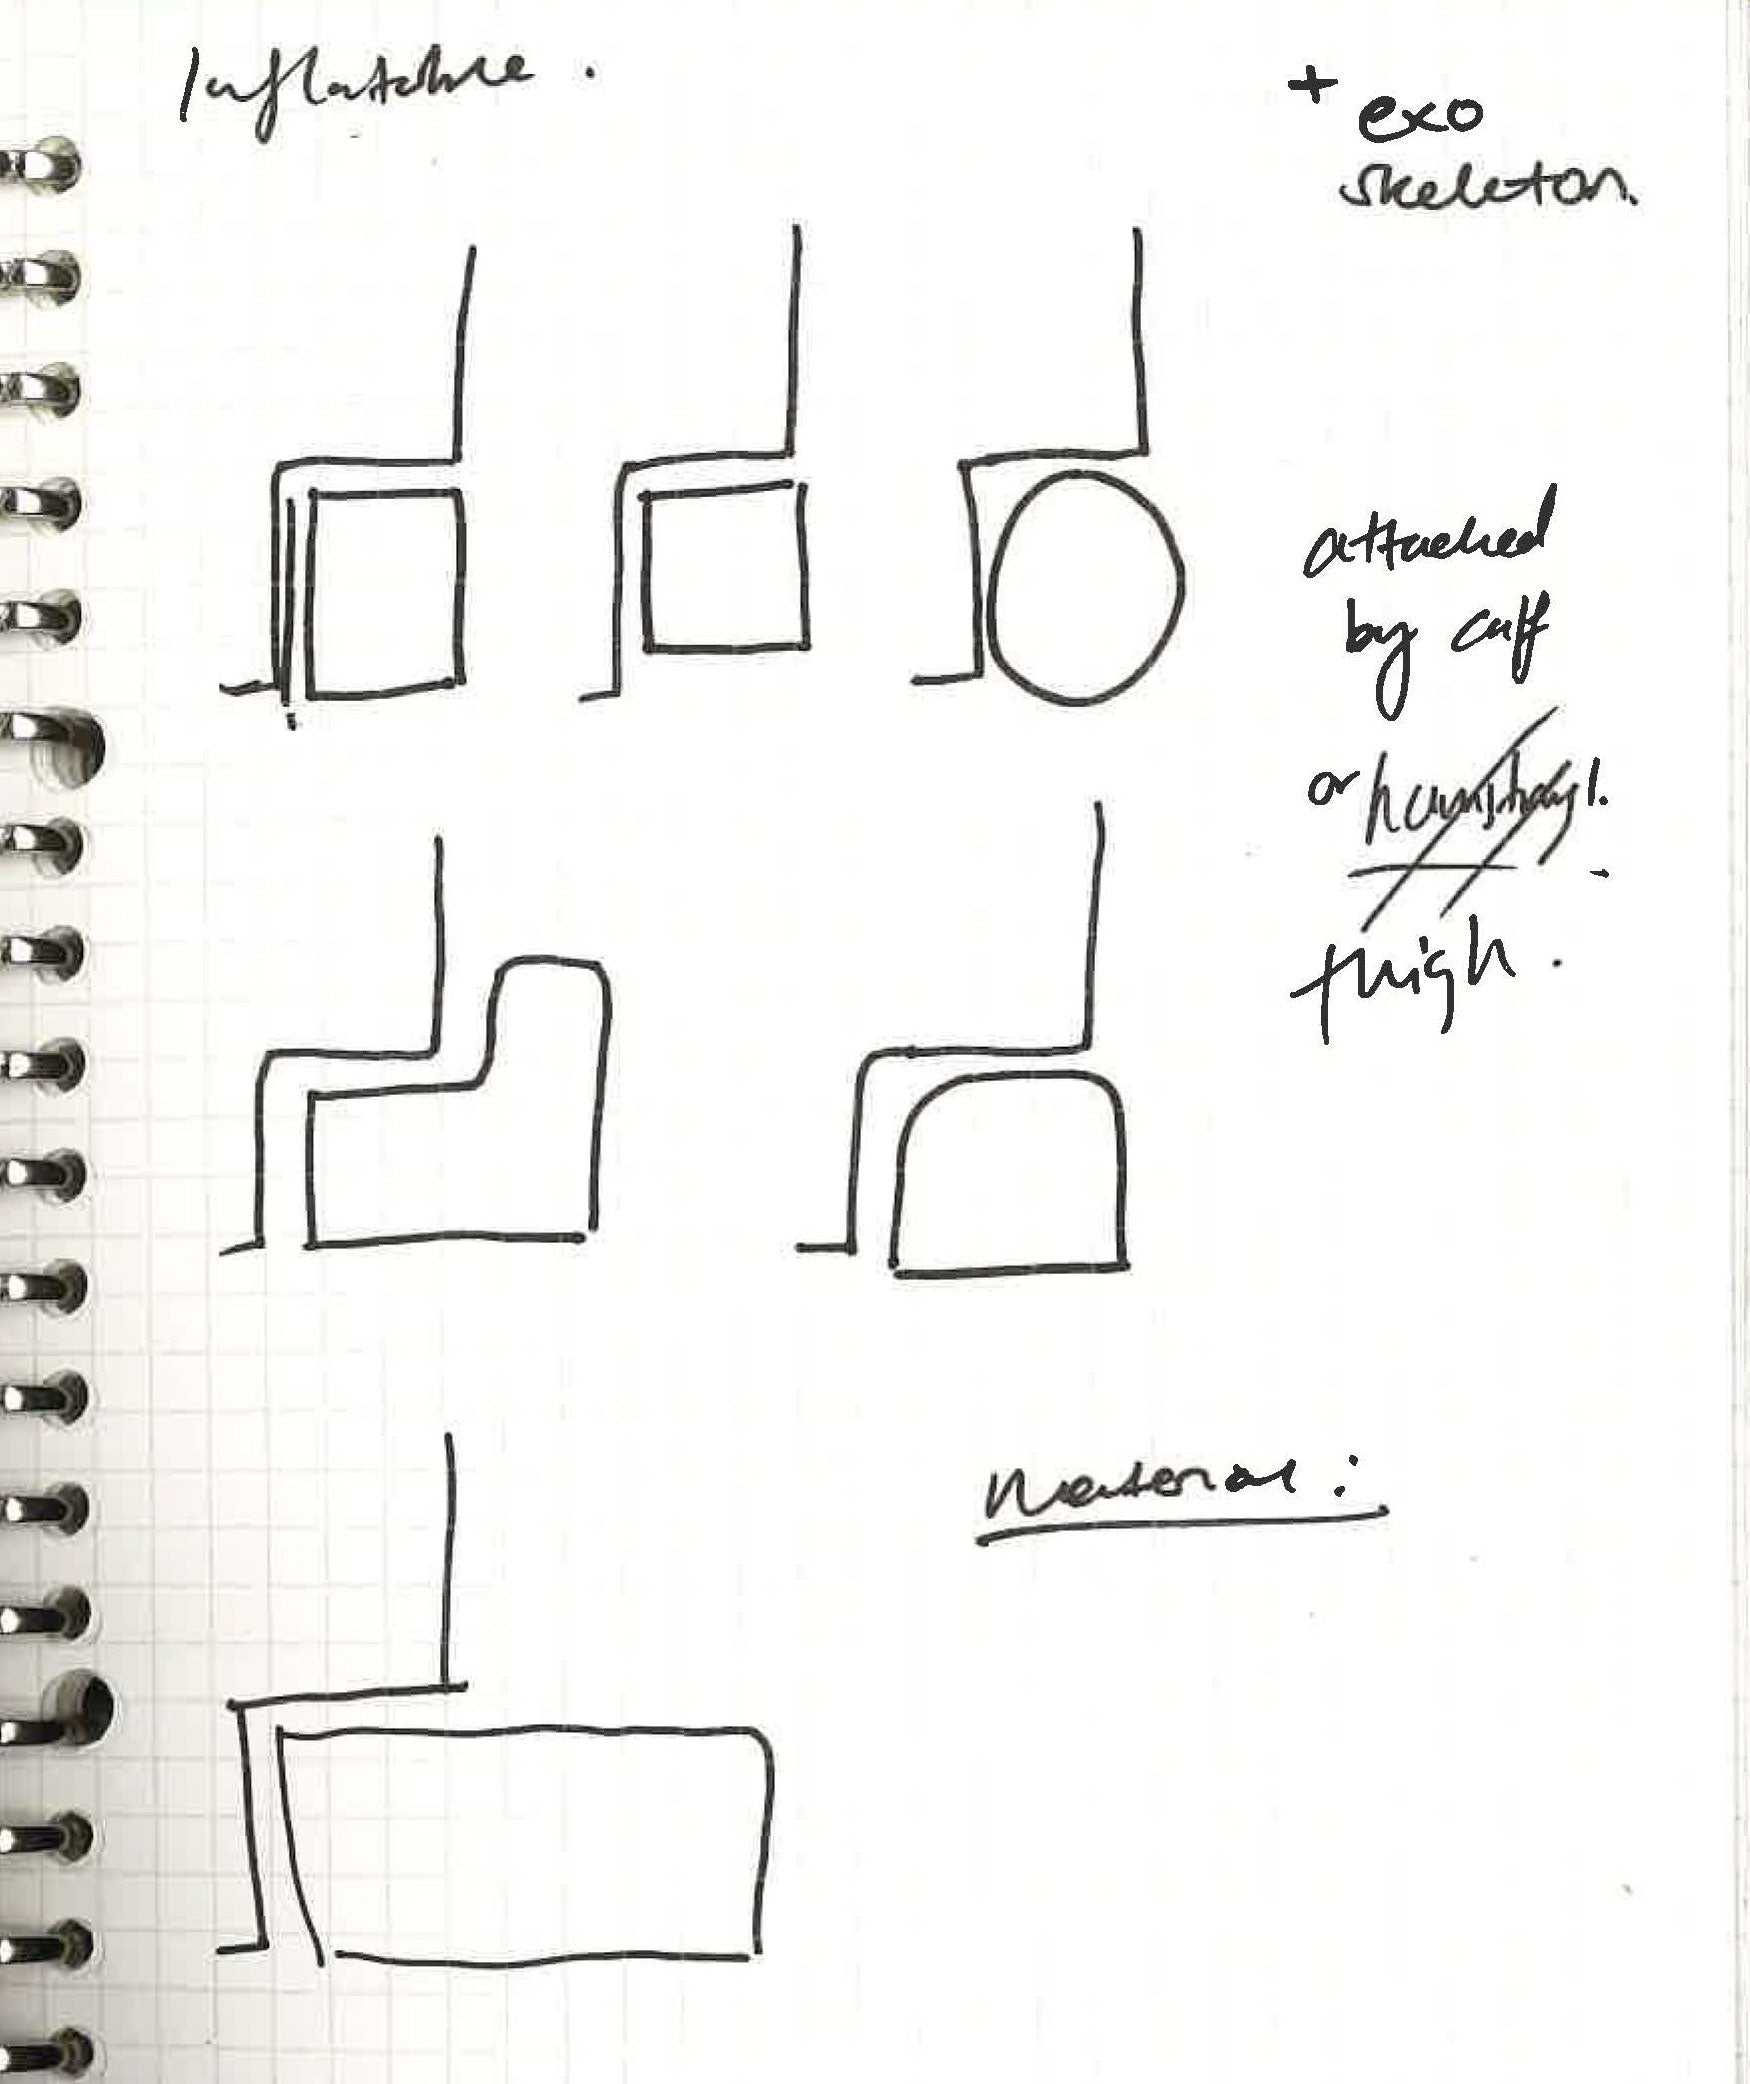 Inflatable.
+ exo
skeleton.
attached
by cuff
or hamstring.
thigh.
Material: